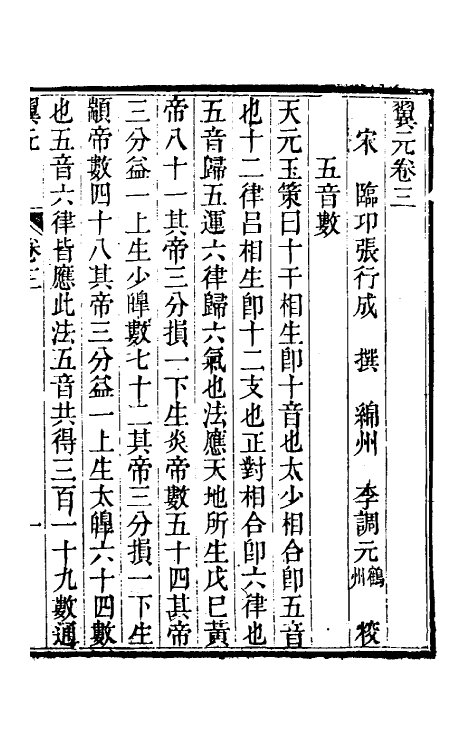 翼元卷三
宋　臨卭張行成　撰　綿州　李調元鶴州　校
五音數
天元玉策曰十干相生卽十音也太少相合卽五音
也十二律呂相生卽十二支也正對相合卽六律也
五音歸五運六律歸六氣也法應天地所生戊巳黃
帝八十一其帝三分損一下生炎帝數五十四其帝
三分益一上生少皥數七十二其帝三分損一下生
顓帝數四十八其帝三分益一上生太皥六十四數
也五音六律皆應此法五音共得三百一十九數通
翼元　卷三　一